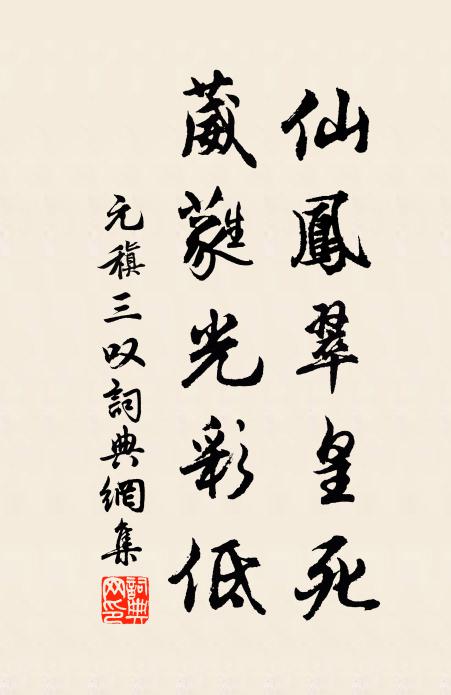 仙鳳翠皇死
葳蕤光彩低
元稹三叹詞典網集
詞典網印